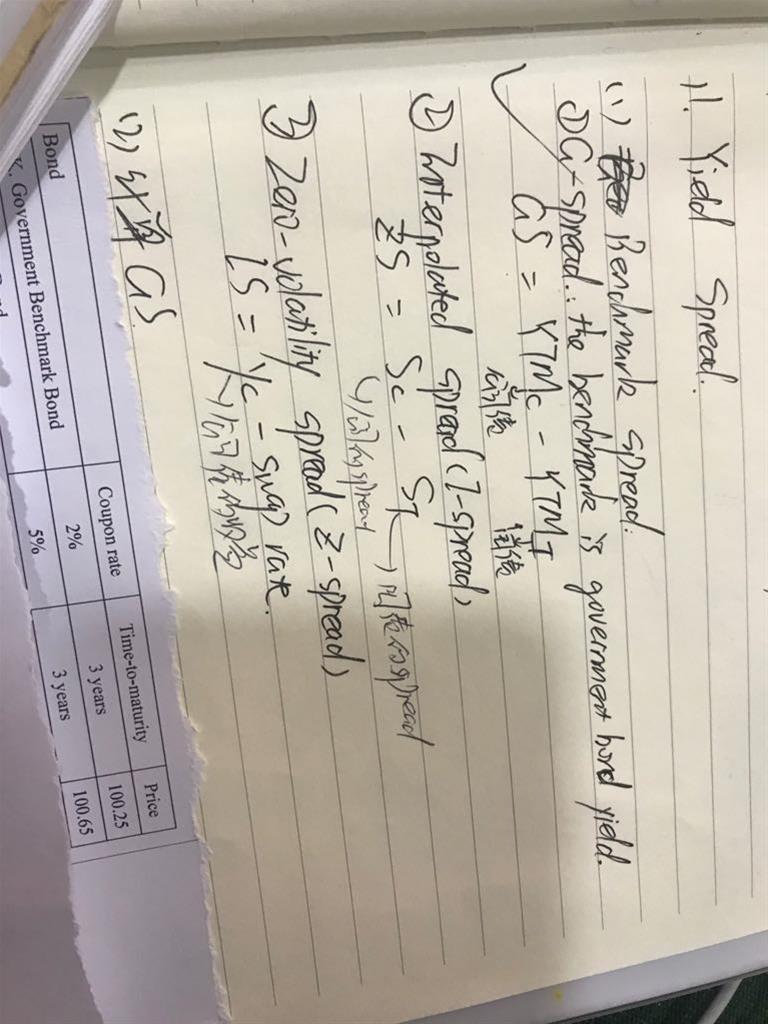 11. Yield Spread.
(1) Benchmark spread:
① G-spread: the benchmark is government bond yield.
GS = YTMc - YTMT
公司债 国债
② Interpolated spread (I-spread)
ZS = Sc - ST
公司的spread 国债的spread
③ Zero-volatility spread (Z-spread)
IS = Yc - swap rate.
公司债的收益
(2) 计算 GS
Bond Coupon rate Time-to-maturity Price
Government Benchmark Bond 2% 3 years 100.25
5% 3 years 100.65